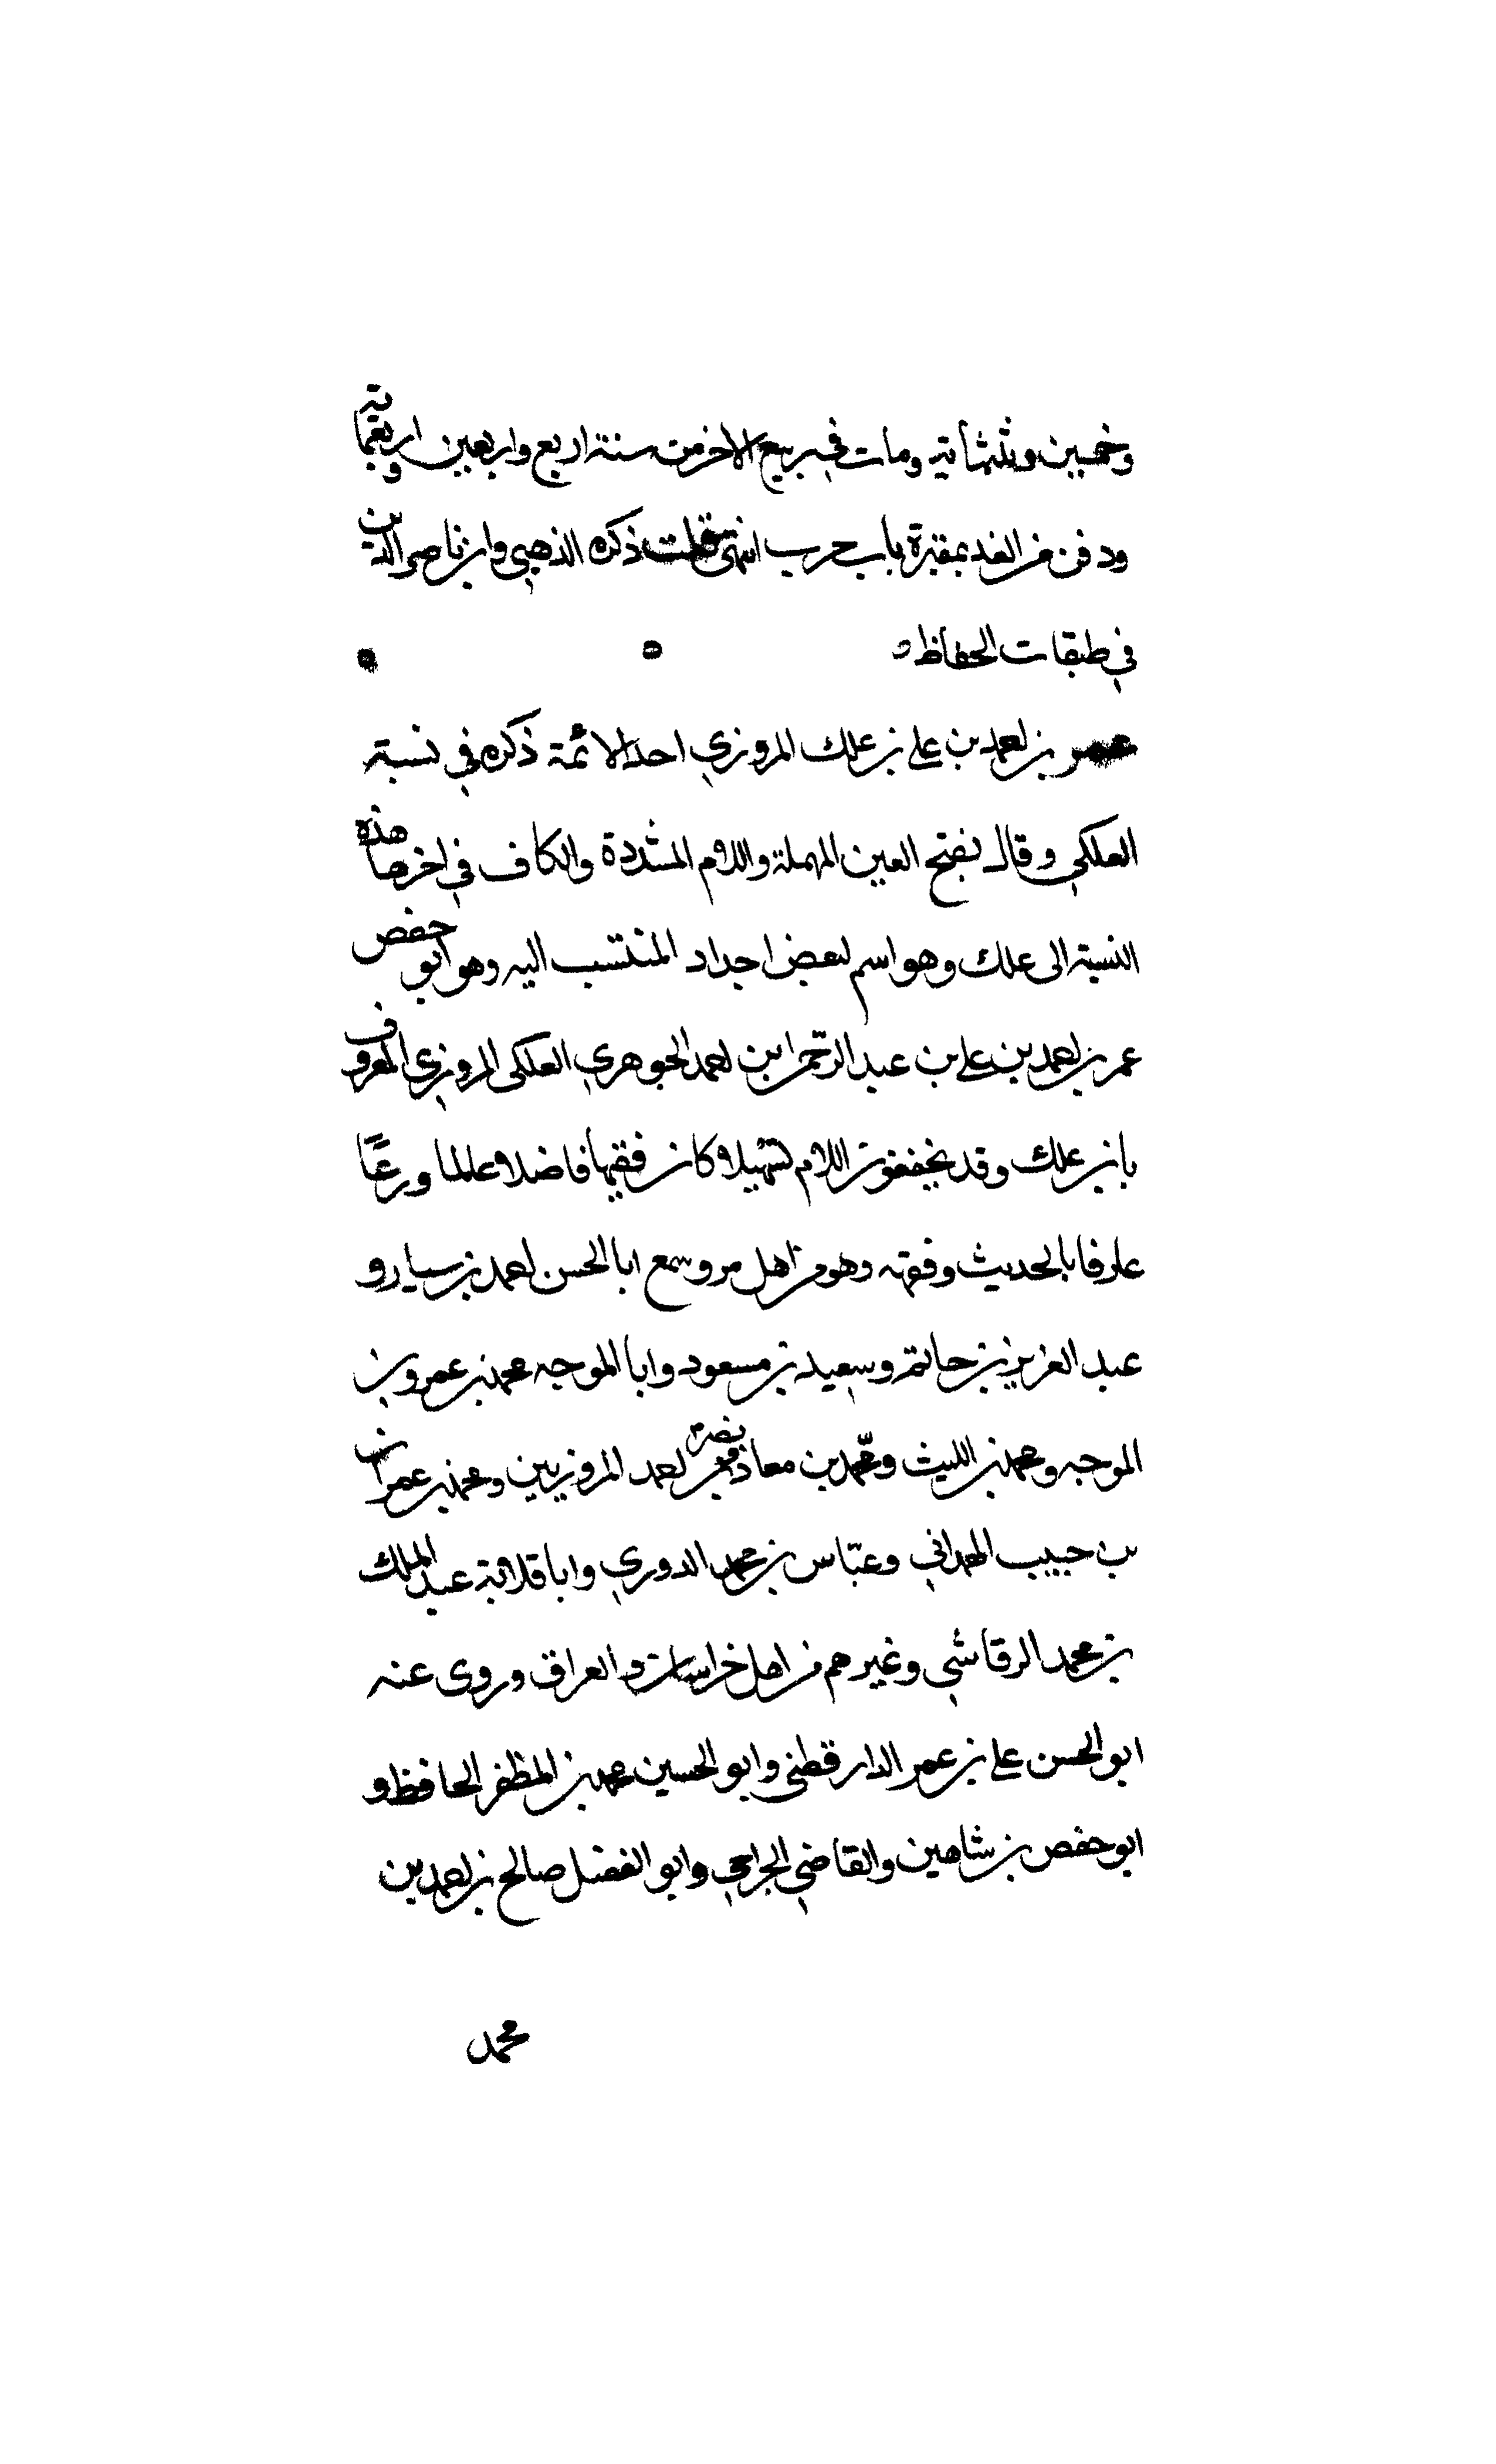 وخمسين وثلثماية ومات في ربيع الاخر من سنة اربع واربعين واربعماية
ودفن من الغد بمقبرة باب حرب انتهى قلت ذكره الذهبي وابن ناصر الدين
في طبقات الحفاظ
عمر بن احمد بن علي بن علك المروزي احد الائمة ذكره في نسبة
العلكي وقال بفتح العين المهملة واللام المشددة والكاف في اخرها هذه
النسبة الى علك وهو اسم لبعض اجداد المنتسب اليه وهو ابو حفص
عمر بن احمد بن علي بن عبد الرحمن ابن احمد الجوهري العلكي المروزي المعروف
بابن علك وقد يخففون اللام تسهيلا كان فقيها فاضلا عالما ورعًا
عارفا بالحديث وفقهه وهو من اهل مرو سمع ابا الحسن احمد بن سيار و
عبد العزيز بن حاتم وسعيد بن مسعود وابا الموجه محمد بن عمرو بن
الموجه ومحمد بن الليث ومحمد بن معاذ ونصر بن احمد المروزيين ومحمد بن عمران
بن حبيب الهمداني وعبّاس بن محمد الدوري وابا قلابة عبد الملك
بن محمد الرقاشي وغيرهم من اهل خراسان والعراق وروى عنه
ابو الحسن علي بن عمر الدارقطني وابو الحسين محمد بن المظفر الحافظ و
ابو حفص بن شاهين والقاضي الجراحي وابو الفضل صالح بن احمد بن
محمد